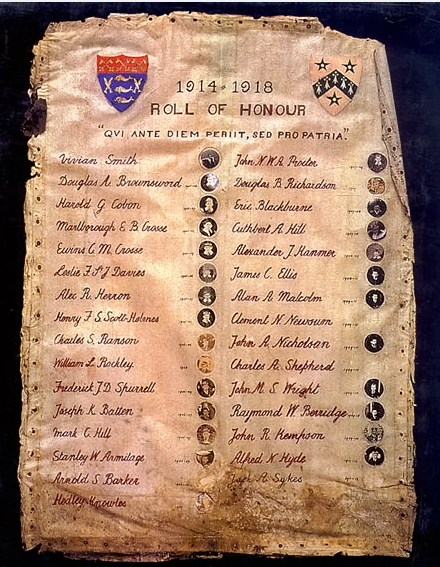 1914-1918
ROLL OF HONOUR
"QVI ANTE DIEM PERIIT, SED PRO PATRIA."
Vivian Smith
Douglas A. Brownsword
Harold G Cobon
Marlborough E B Crosse
Ewins C. M. Crosse
Leslie F. St J Davies
Alec R. Herron
Henry F S Scott-Holmes
Charles S. Ranson
William L. Rockley
Frederick J D. Spurrell
Joseph K Batten
Mark C Hill
Stanley W Armitage
Arnold S Barker
Hedley Knowles
John N W A Procter
Douglas B Richardson
Eric Blackburne
Cuthbert A. Hill
Alexander J Hanmer
James C. Ellis
Alan A Malcolm
Clement N Newsum
John A. Nicholson
Charles A. Shepherd
John M. S. Wright
Raymond W Berridge
John R Kempson
Alfred N Hyde
Jack A. Sykes